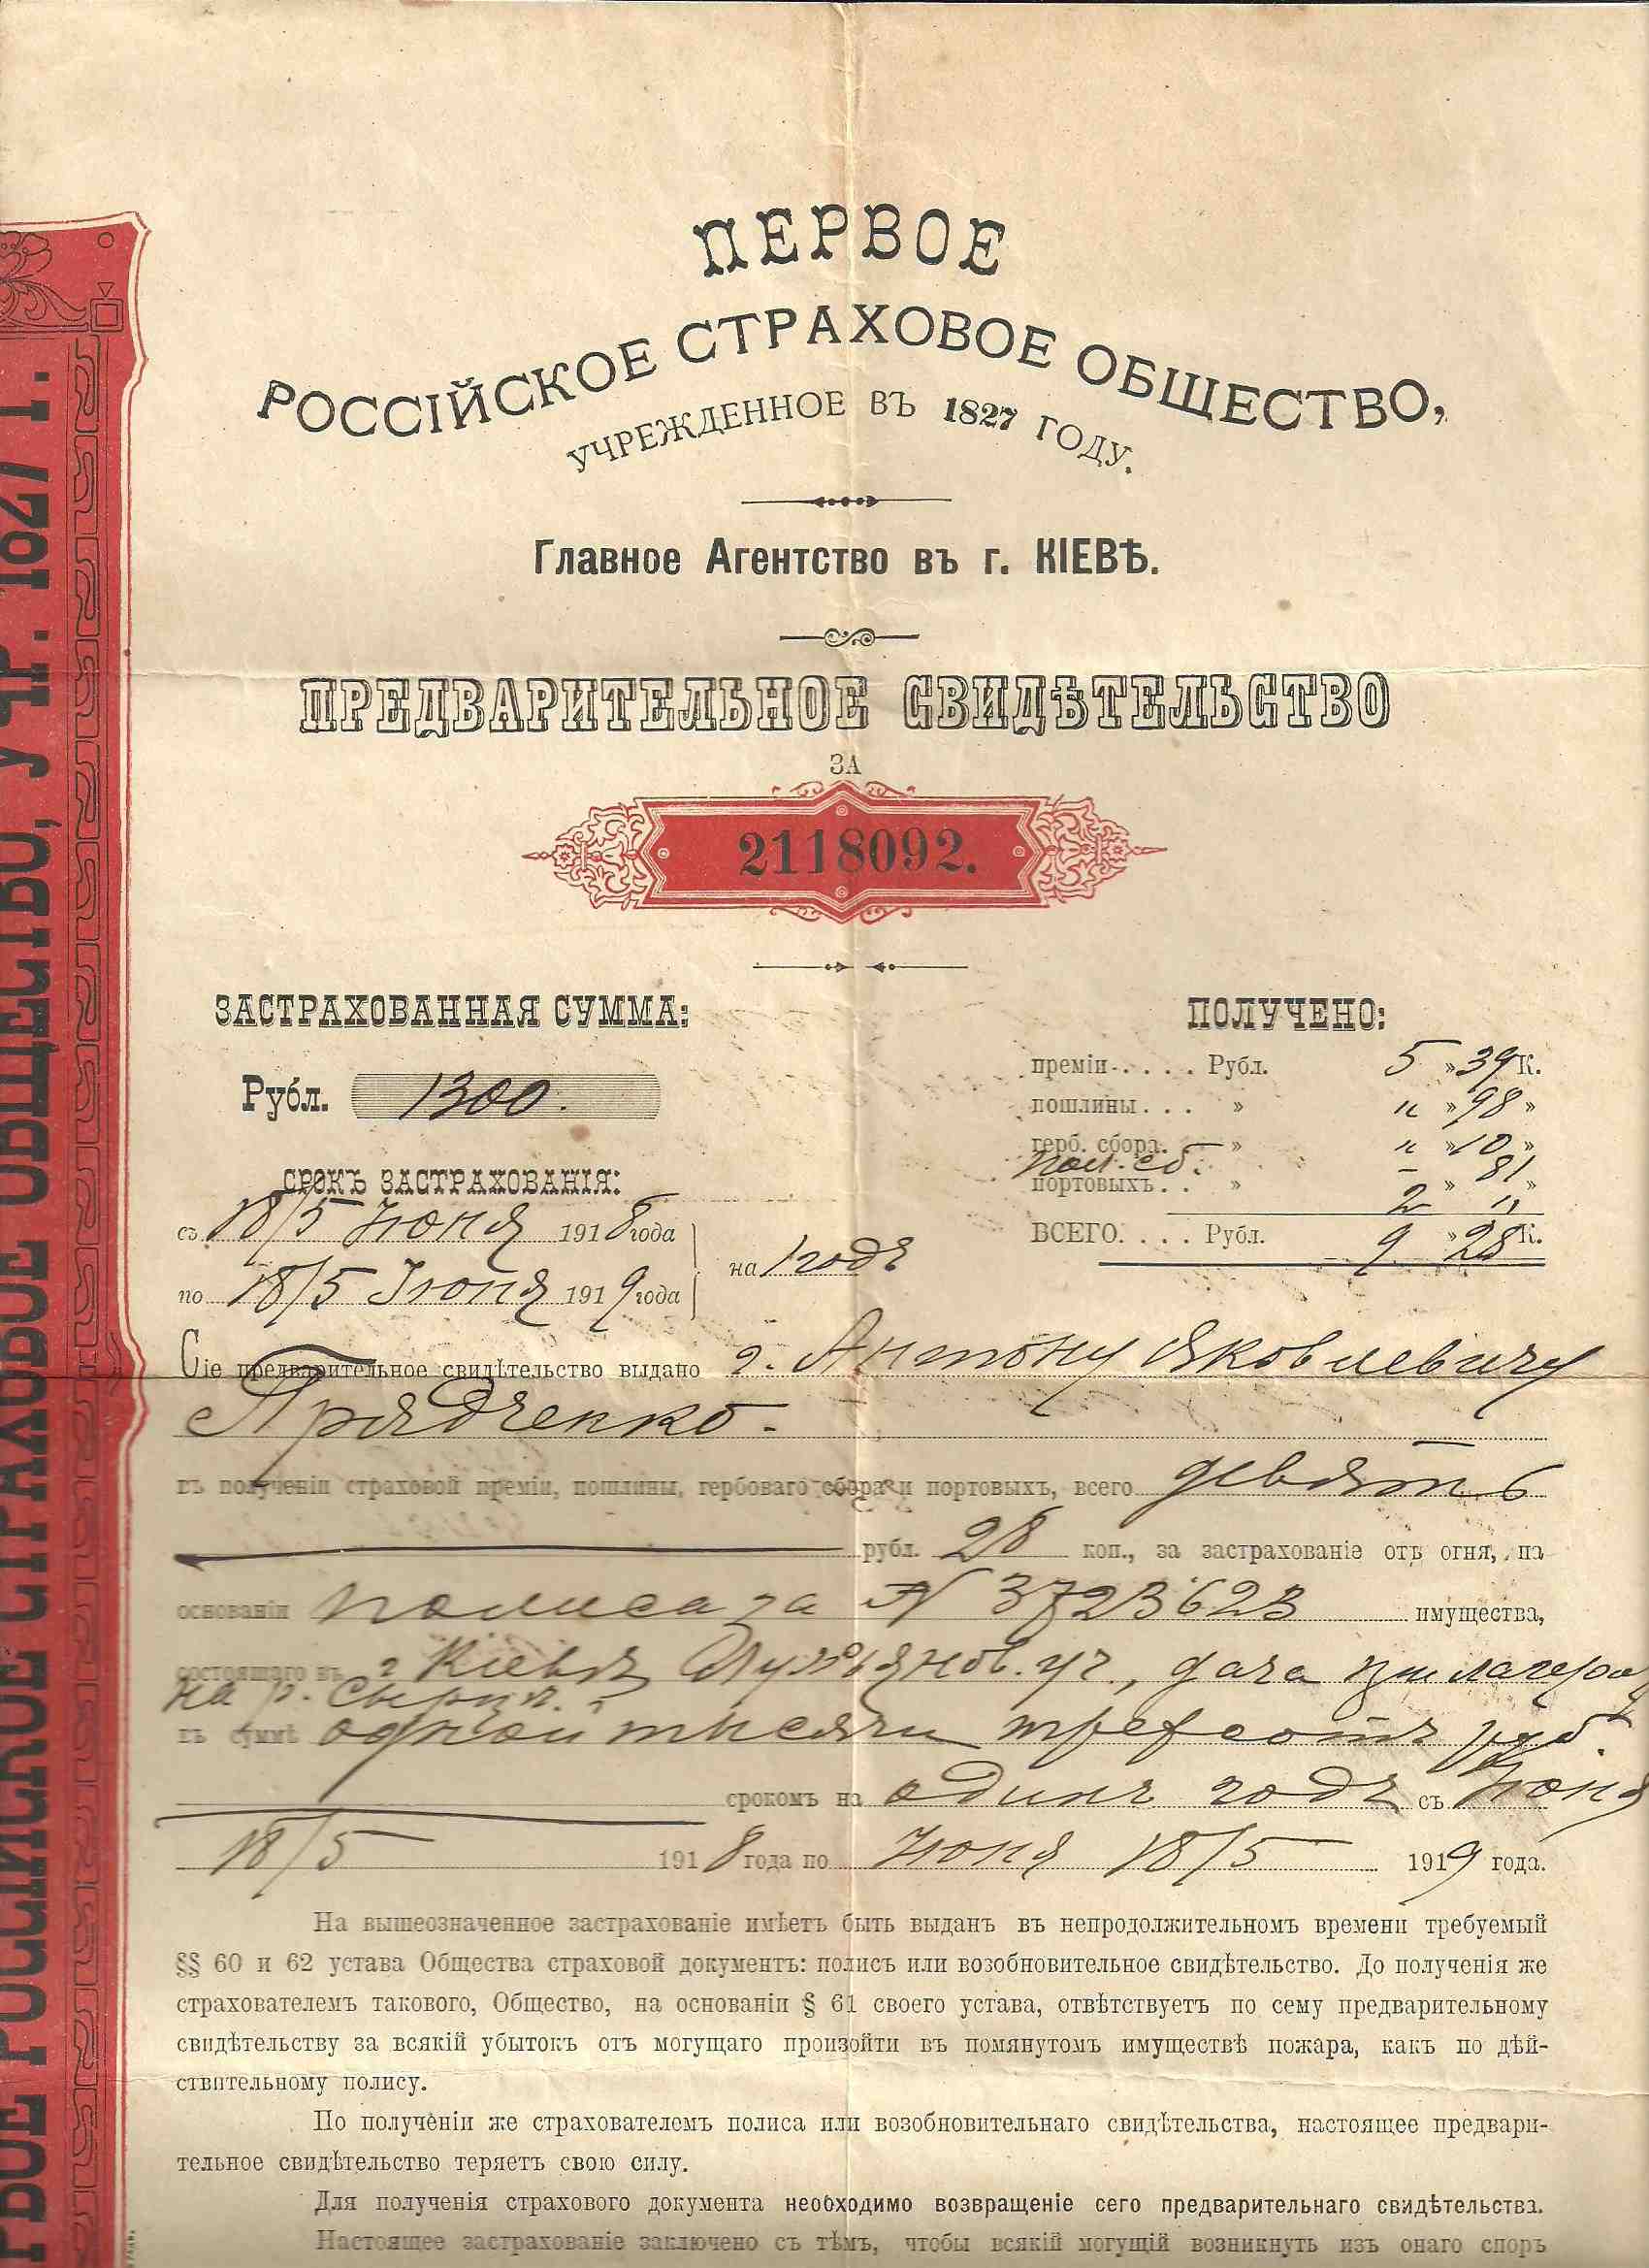 ПЕРВОЕ
РОССІЙСКОЕ СТРАХОВОЕ ОБЩЕСТВО,
УЧРЕЖДЕННОЕ ВЪ 1827 ГОДУ.
Главное Агентство въ г. КІЕВѢ.
ПРЕДВАРИТЕЛЬНОЕ СВИДѢТЕЛЬСТВО
ЗА
2118092.
ЗАСТРАХОВАННАЯ СУММА:
Рубл. 1300.
СРОКЪ ЗАСТРАХОВАНІЯ:
съ 18/5 Іюня 1918 года
по 18/5 Іюня 1919 года
на 1 годъ
ПОЛУЧЕНО:
преміи..... Рубл. 5 » 39 К.
пошлины... » " » 98 »
герб. сбора. » " » 10 »
пол. сб. – 81
портовыхъ.. » 2 » " »
ВСЕГО..... Рубл. 9 » 28 К.
Сіе предварительное свидѣтельство выдано г. Антону Яковлевичу
Прядченко.
въ полученіи страховой преміи, пошлины, гербоваго сбора и портовыхъ, всего девять
рубл. 28 коп., за застрахованіе отъ огня, на
основаніи полиса за № 3723623 имущества,
состоящаго въ г Кіевѣ Лукьянов. уч., дача при лагеряхъ
на р. Сырцѣ.
въ суммѣ одной тысячи трехсотъ руб.
срокомъ на одинъ годъ съ Іюня
18/5 1918 года по Іюня 18/5 1919 года.
На вышеозначенное застрахованіе имѣетъ быть выданъ въ непродолжительномъ времени требуемый
§§ 60 и 62 устава Общества страховой документъ: полисъ или возобновительное свидѣтельство. До полученія же
страхователемъ такового, Общество, на основаніи § 61 своего устава, отвѣтствуетъ по сему предварительному
свидѣтельству за всякій убытокъ отъ могущаго произойти въ помянутомъ имуществѣ пожара, какъ по дѣй-
ствительному полису.
По полученіи же страхователемъ полиса или возобновительнаго свидѣтельства, настоящее предвари-
тельное свидѣтельство теряетъ свою силу.
Для полученія страхового документа необходимо возвращеніе сего предварительнаго свидѣтельства.
Настоящее застрахованіе заключено съ тѣмъ, чтобы всякій могущій возникнуть изъ онаго споръ
РВОЕ РОССІЙСКОЕ СТРАХОВОЕ ОБЩЕСТВО, УЧР. 1827 Г.